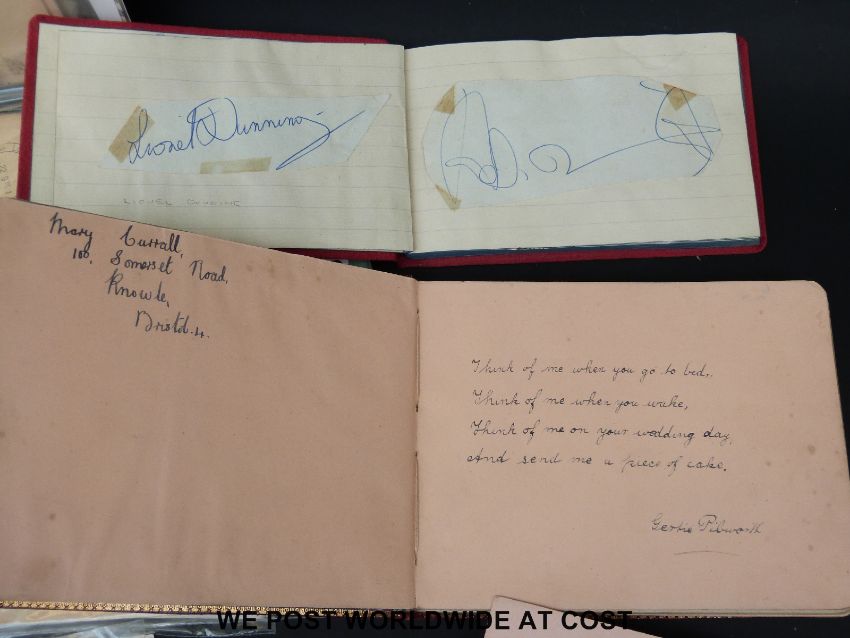 Lionel Dunning
LIONEL DUNNING
Mary Currall,
100. Somerset Road,
Knowle,
Bristol. 4.
Think of me when you go to bed,
Think of me when you wake,
Think of me on your wedding day,
And send me a piece of cake.
Gertie Pibworth
WE POST WORLDWIDE AT COST